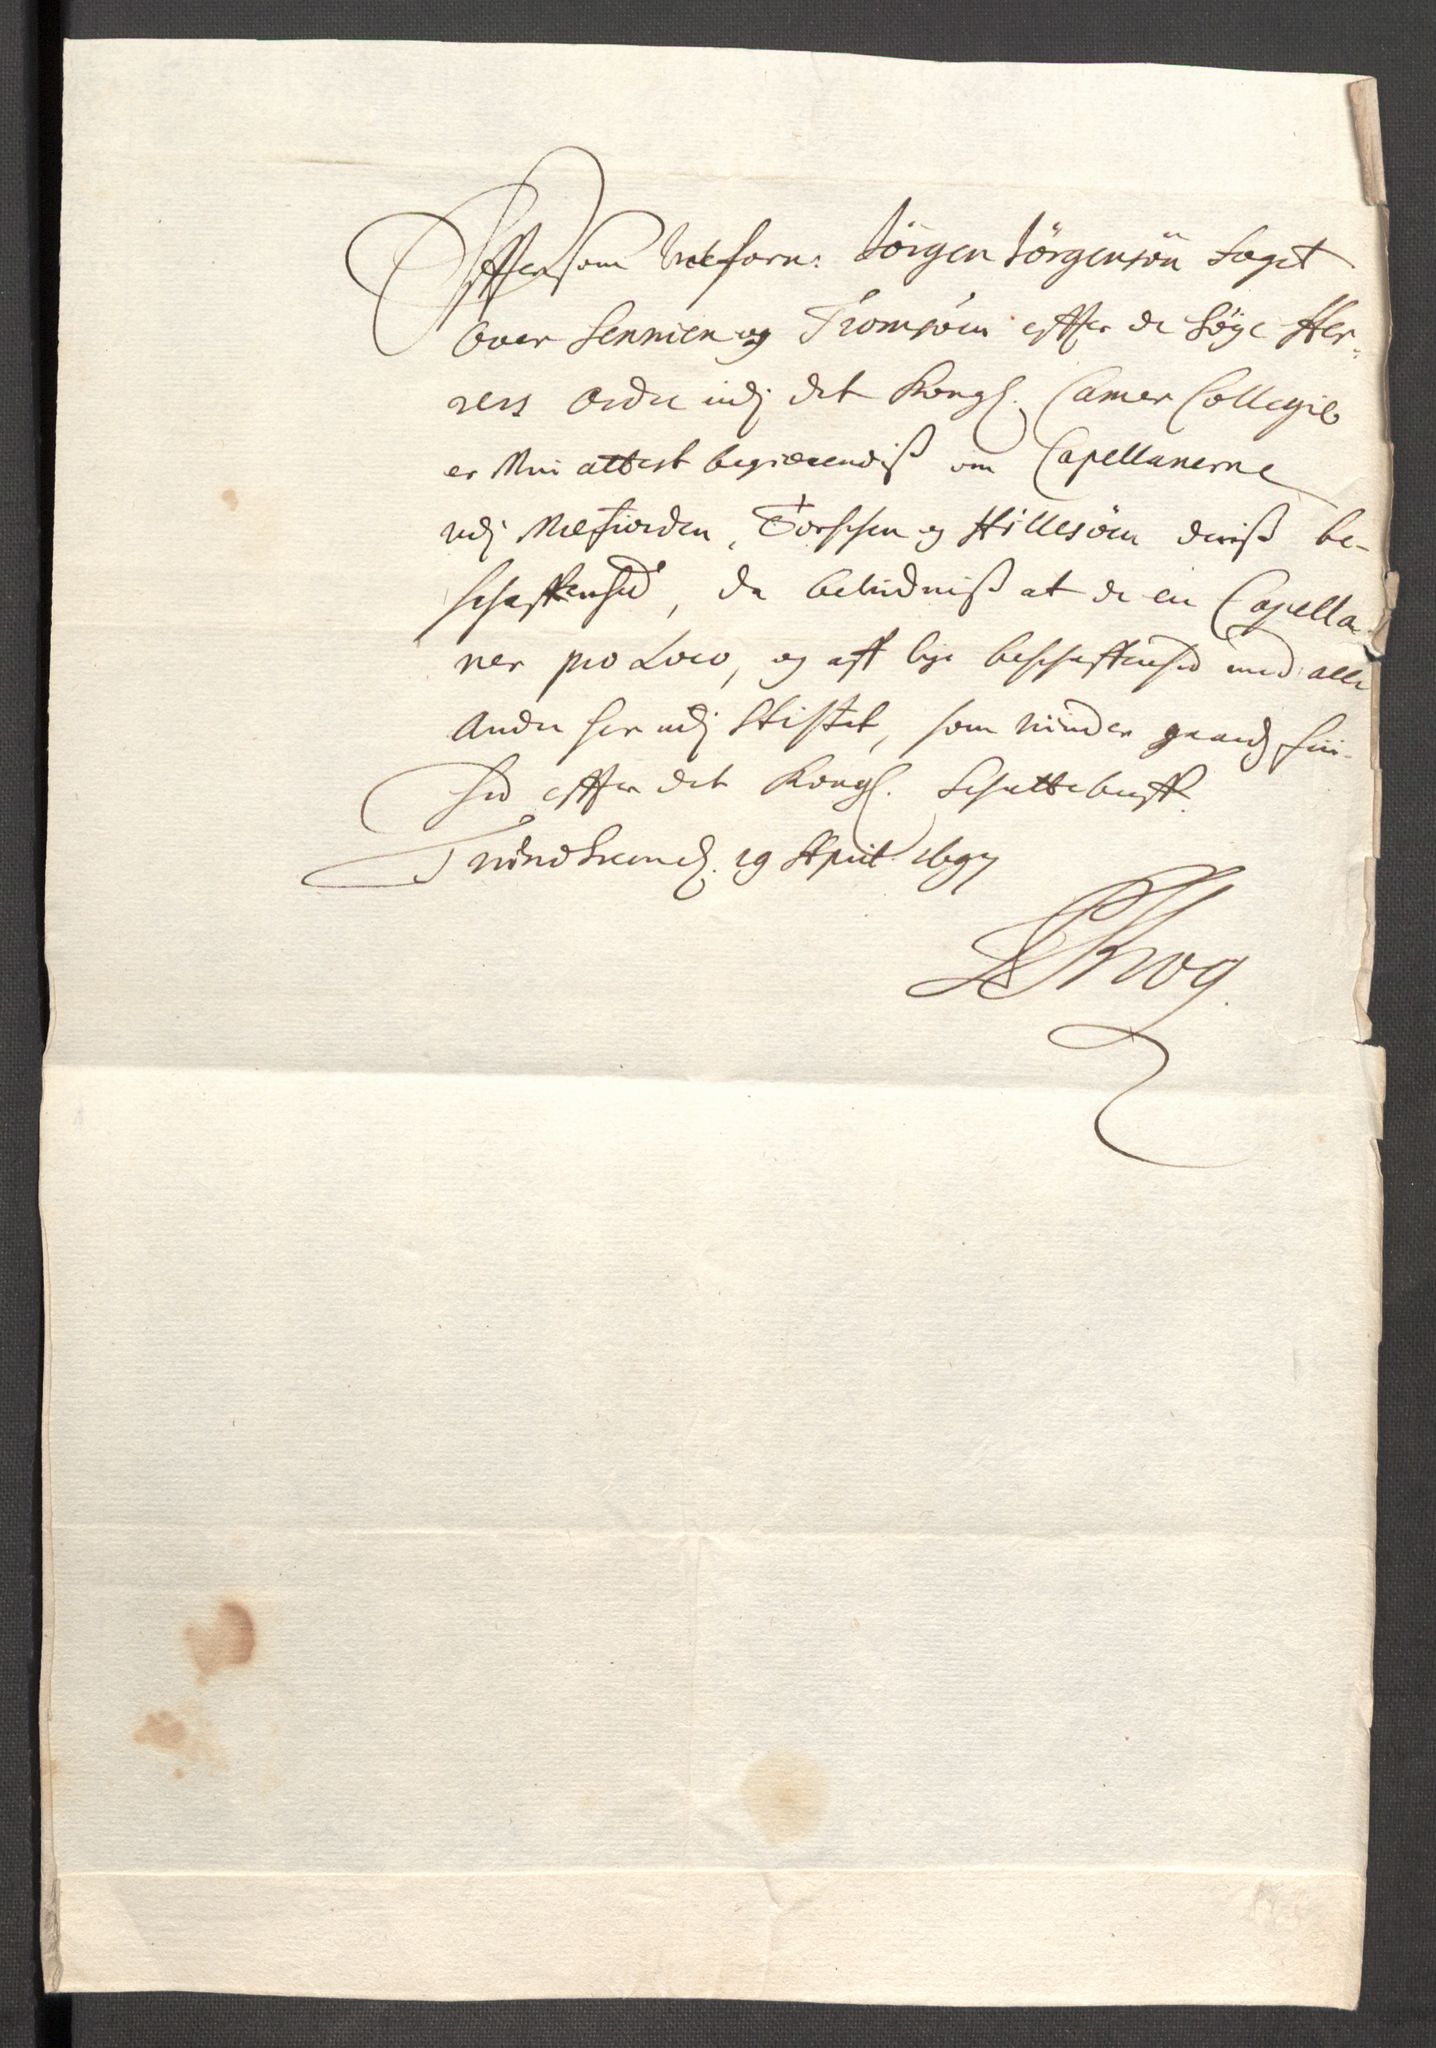 Effersom Velforn: Jörgen Jörgensön Foget
Over Sennien og Tromsöen effter de Höye Her-
rers Ordre udj det Kongl. Camer Collegie
er Min attest begierendiß om Capellanerne
udj Mefiorden, Torschen og Hillesöen deriß be-
schaffenhed, da betiidniß at de ere Capella-
ner pro Loco, og aff lige beschaffenhed med alle
Andre her udj Stifftet, som niuder gvardj frii-
hed effter det Kongl. Schattebreff.
Trundhiemb. 19 April 1697
P Krog